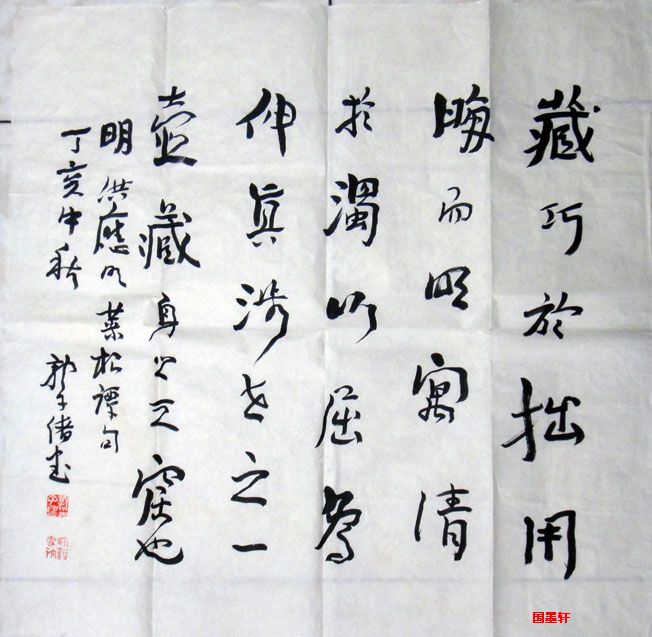 藏巧於拙用
晦而明寓清
於濁以屈為
伸真涉世之一
壺藏身之三窟也
明 洪應明 菜根譚句
丁亥中秋
國墨軒